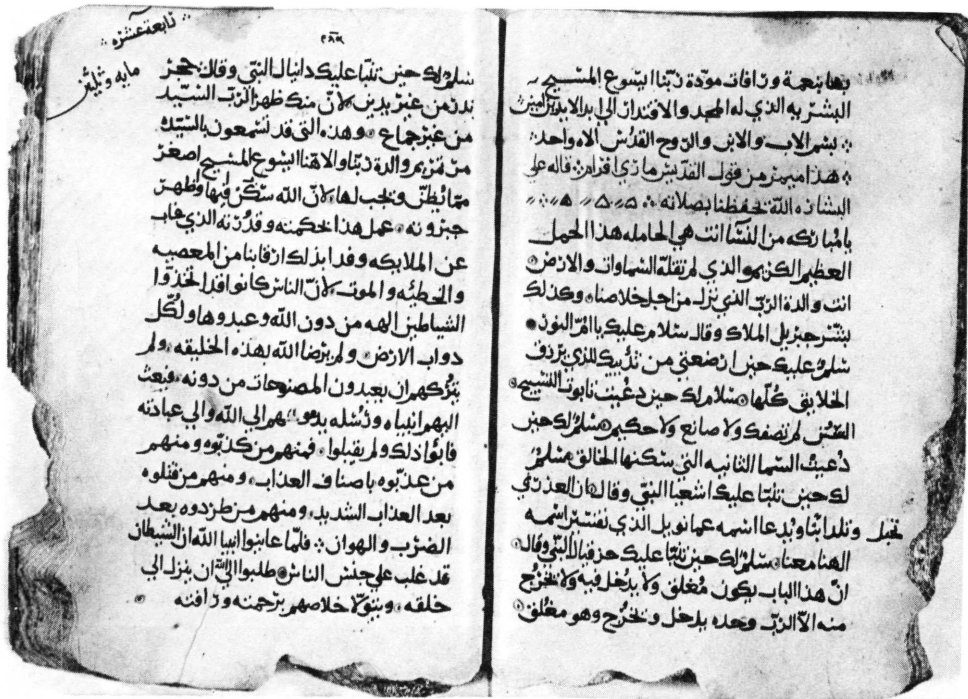 بها بنعمة ورافات مودة ربنا ايسوع المسيح
البشر به الذي له المجد والاقتدار الى ابد الابدين امين
بسم الاب والابن والروح القدس الاه واحد
هذا ميمر من قول القديس ماري افرام قاله على
البشاره الله يحفظنا بصلاته
يا مباركه من النسا انت هي الحامله هذا الحمل
العظيم الكريم والذي لم تقله السماوات والارض
انت والدة الرب الذي نزل من اجل خلاصنا وكذلك
بشر جبريل الملاك وقال سلام عليك يا ام النور
سلام عليك حين ارضعتي من ثدييك للذي يرزق
الخلايق كلها سلام لك حين دعيت تابوت
لم تصفك ولا صانع ولا حكيم سلام لك حين
دعيت السما الثانيه التي سكنها الخالق سلام
لك حين تنبا عليك اشعيا النبي وقال ان العذري
تحبل وتلد ابنا ويدعا اسمه عمانويل الذي تفسير اسمه
الهنا معنا سلام لك حين تنبا عليك حزقيال النبي وقال
ان هذا الباب يكون مغلق ولا يدخل فيه ولا يخرج
منه الا الرب وحده يدخل ويخرج وهو مغلق
تابعة عشره
مايه وثلثين
سلام لك حين تنبا عليك دانيال النبي وقال حجر
من غير يدين لان منك ظهر الرب السيد
من غير جماع وهذه التي قد تسمعون بالسيده
مرتمريم والدة ربنا والاهنا ايسوع المسيح اصغر
مما يظن ويجب لها لان الله سكن فيها وظهر
جبروته عمل هذا بحكمته وقدرته الذي غاب
عن الملايكه وفدا بذلك ارقابنا من المعصيه
والخطيئه والموت لان الناس كانوا قد اتخذوا
الشياطين الهه من دون الله وعبدوها ولكل
دواب الارض ولم يرضا الله بهذه الخليقه ولم
يتركهم ان يعبدون المصنوعات من دونه فبعث
اليهم انبياه ورسله يدعوهم الى الله والى عبادته
فابوا ذلك ولم يقبلوا فمنهم من كذبوه ومنهم
من عذبوه باصناف العذاب ومنهم من قتلوه
بعد العذاب الشديد ومنهم من طردوه بعد
الضرب والهوان فلما عاينوا انبيا الله ان الشيطان
قد غلب على جنس الناس طلبوا الى الله ان ينزل الى
خلقه ويتولا خلاصهم برحمته ورافته